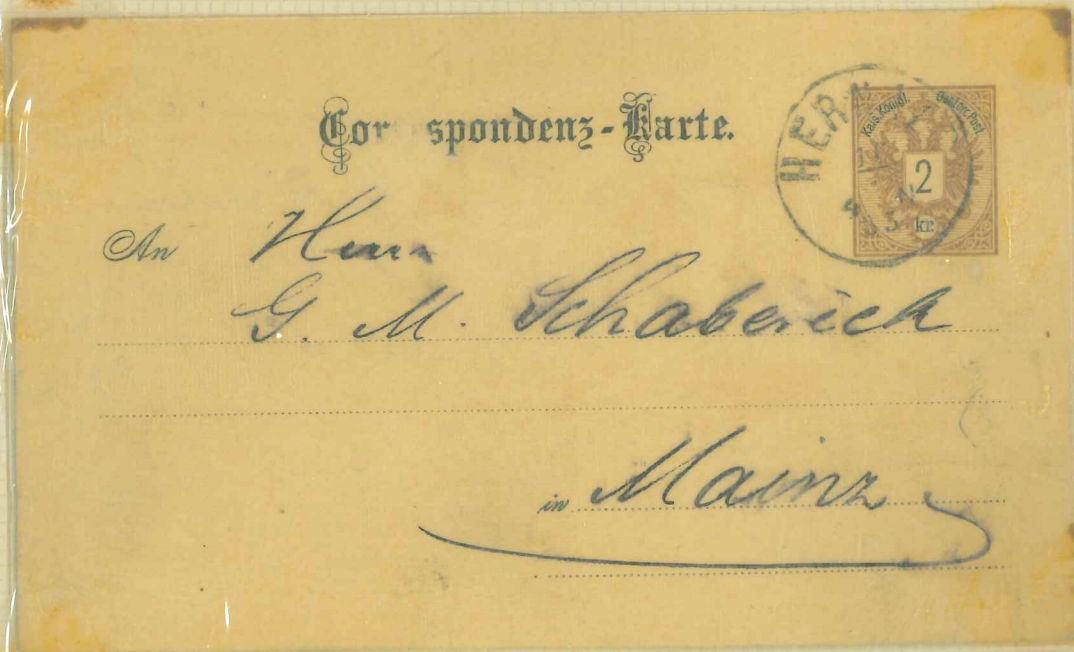 Correspondenz-Karte.
Kais. Königl. Oesterr. Post
2
kr.
An Herrn
G. M. Schaberick
in Mainz